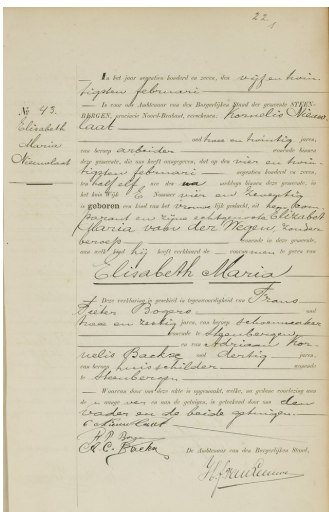 22
In het jaar negentien honderd en zeven, den vijf en twin-
tigsten februari
voor ons Ambtenaar van den Burgerlijken Stand der gemeente STEEN-
BERGEN, provincie Noord-Brabant, verschenen: Kornelis Nieuw-
laat
No 43.
Elisabeth
Maria
Nieuwlaat
oud twee en twintig jaren,
van beroep arbeider wonende binnen
deze gemeente, die ons heeft aangegeven, dat op den vier en twin-
tigsten februari negentien honderd en zeven,
ten half elf ure des na middags binnen deze gemeente, in
het huis wijk E Nummer vier en
is geboren een kind van het vrouwelijk geslacht, uit hem com-
parant en zijne echtgenoote Elisabeth
Maria van der Wegen, zonder
beroep wonende in deze gemeente,
aan welk kind hij heeft verklaard de voornamen te geven van
Elisabeth Maria
Deze verklaring is geschied in tegenwoordigheid van Frans
Pieter Bogers oud
twee en zestig jaren, van beroep schoenmaker
wonende te Steenbergen,
en van Adriaan Kor-
nelis Baekse oud dertig jaren,
van beroep huisschilder wonende
te Steenbergen.
Waarvan door ons deze akte is opgemaakt, welke, na gedane voorlezing aan
de en aan de getuigen, is geteekend door ons den
vader en de beide getuigen
C Nieuwlaat
De Ambtenaar van den Burgerlijken Stand,